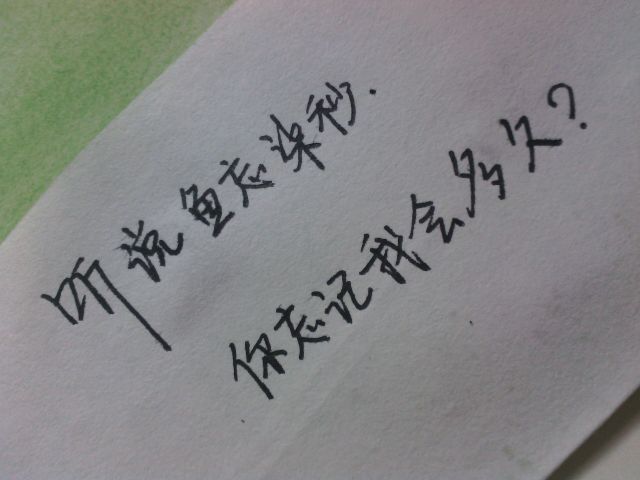 听说鱼忘柒秒.
你忘记我会多久?